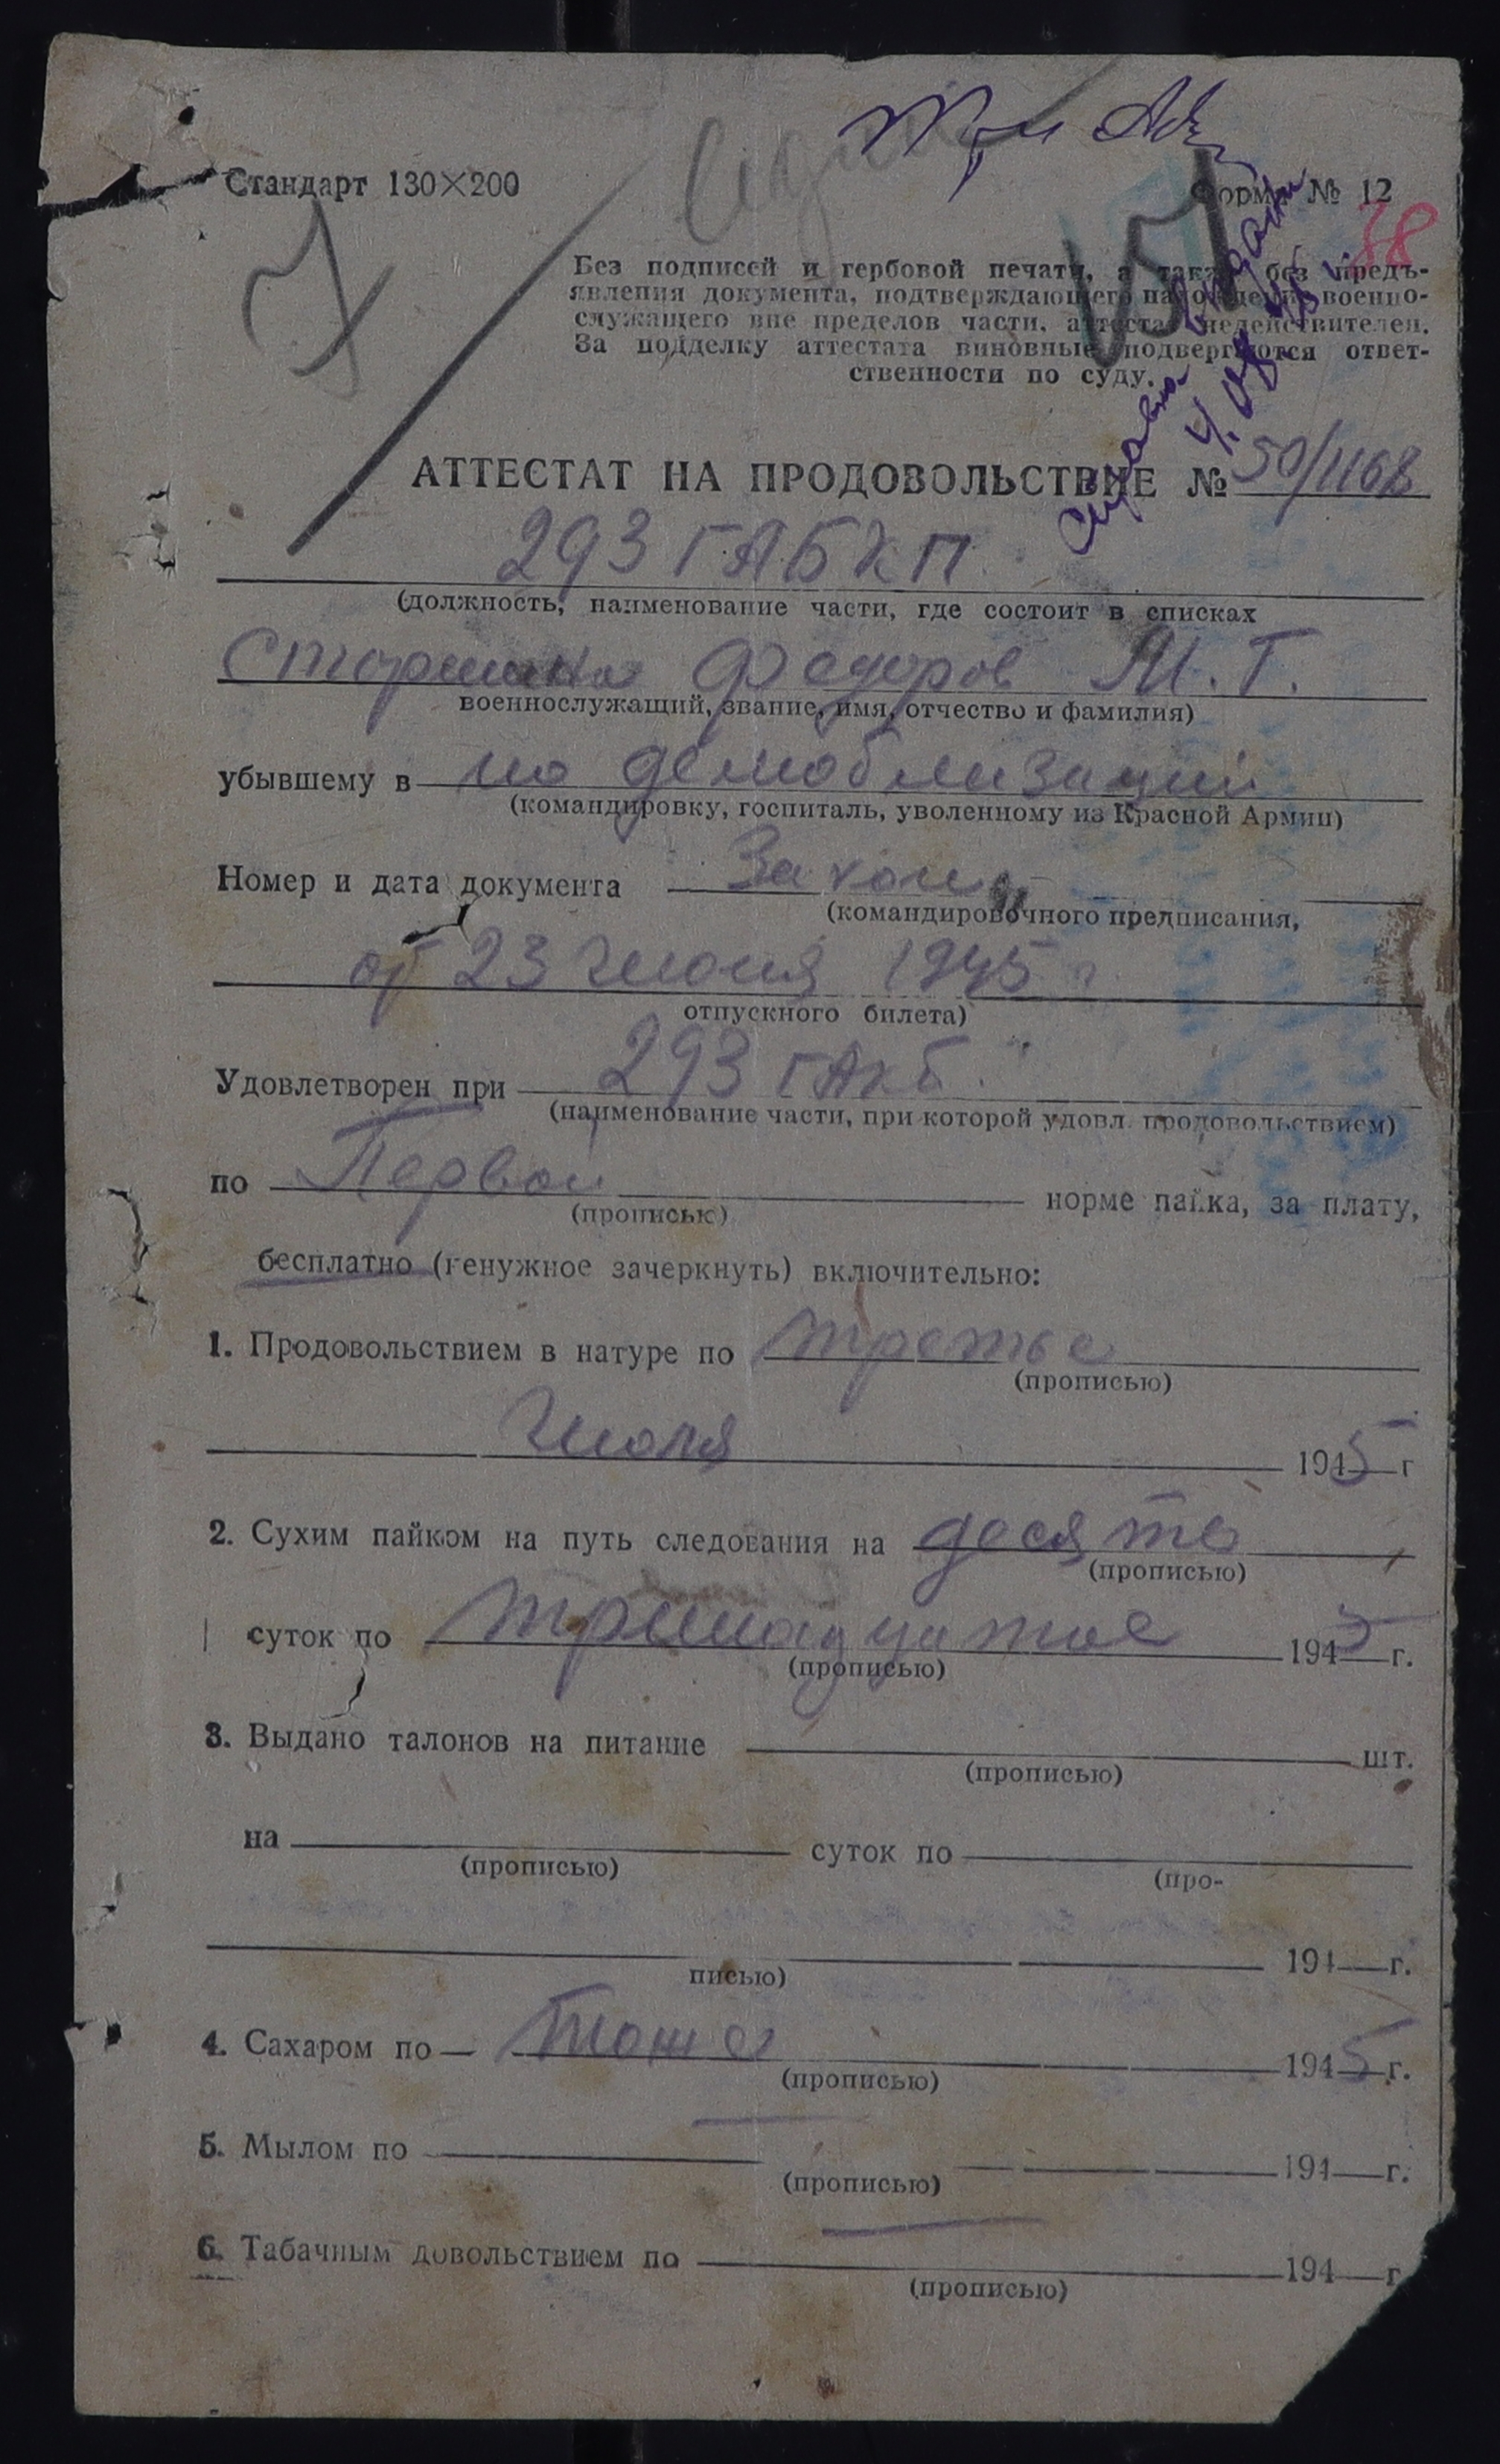 Стандарт 130×200
Форма № 12
38
Без подписей и гербовой печати, а также без предъ-
явления документа, подтверждающего нахождение военно-
служащего вне пределов части, аттестат недействителен.
За подделку аттестата виновные подвергаются ответ-
ственности по суду.
Справка выдана
АТТЕСТАТ НА ПРОДОВОЛЬСТВИЕ № 50/1168
293 ГАБКП
(должность, наименование части, где состоит в списках
Старшина Федоров М. Г.
военнослужащий, звание, имя, отчество и фамилия)
убывшему в по демоблизации
(командировку, госпиталь, уволенному из Красной Армии)
Номер и дата документа Закон
(командировочного предписания,
от 23 июня 1945 г
отпускного билета)
Удовлетворен при 293 ГАКБ.
(наименование части, при которой удовл. продовольствием)
по Первой норме пайка, за плату,
(прописью)
бесплатно (ненужное зачеркнуть) включительно:
1. Продовольствием в натуре по третье
(прописью)
Июля 1945 г
2. Сухим пайком на путь следования на десять
(прописью)
суток по тринадцатое 1945 г.
(прописью)
3. Выдано талонов на питание шт.
(прописью)
на суток по
(прописью) (про-
194 г.
писью)
4. Сахаром по — Тоже 1945 г.
(прописью)
5. Мылом по — 194 г.
(прописью)
6. Табачным довольствием по — 194 г
(прописью)